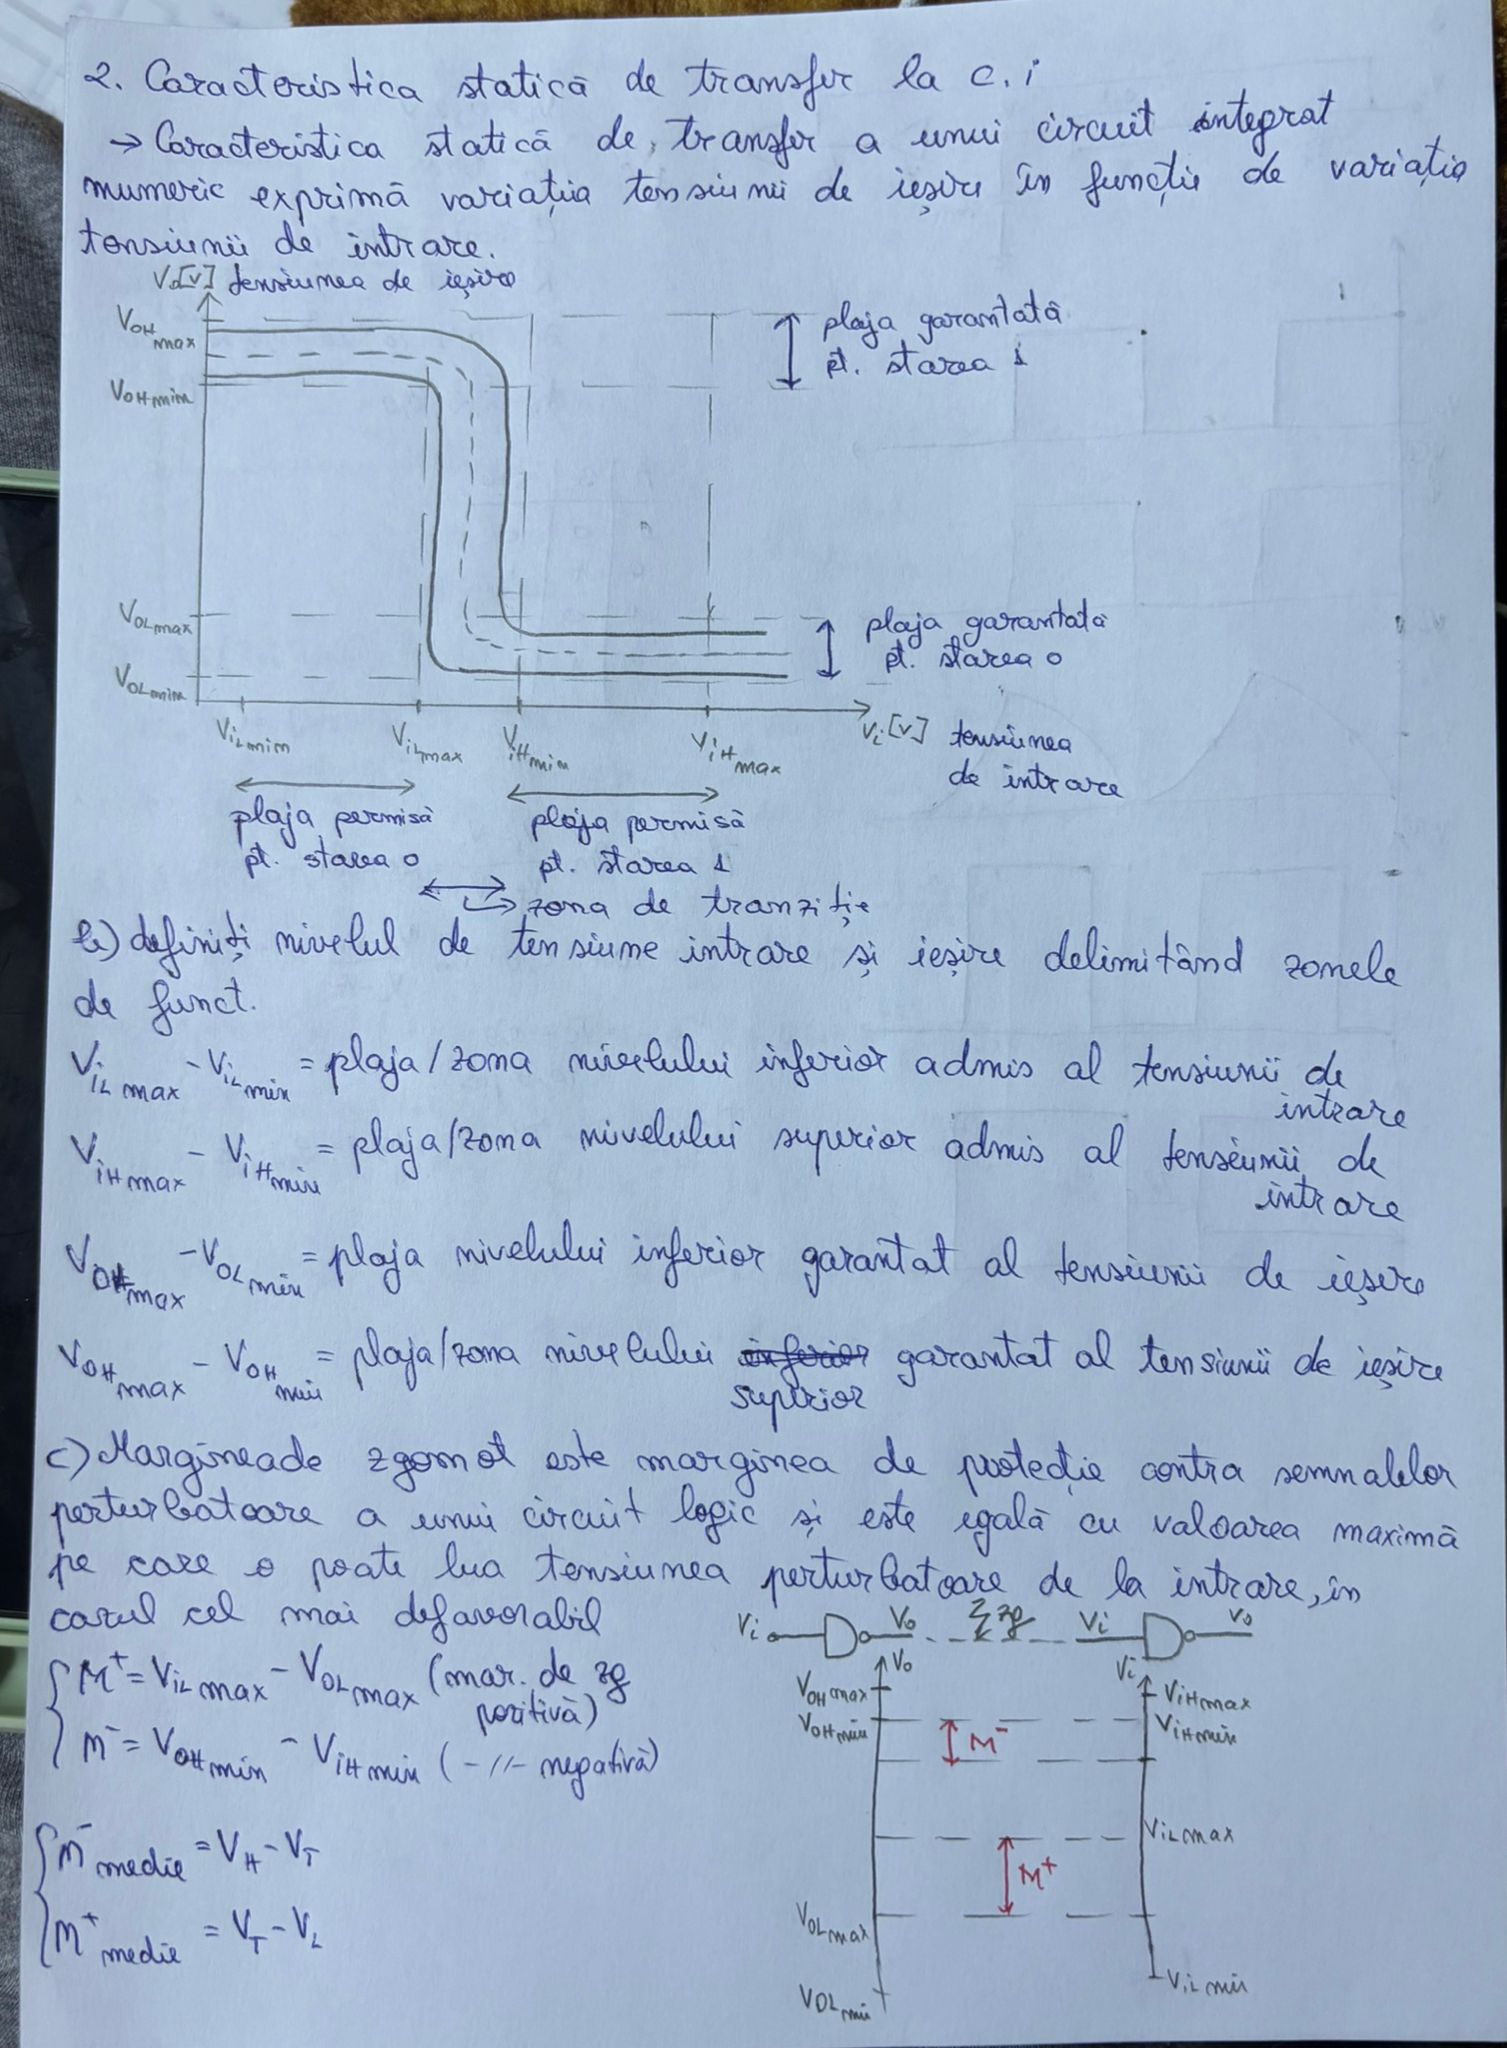 2. Caracteristica statică de transfer la c.i
→ Caracteristica statică de transfer a unui circuit integrat
numeric exprimă variația tensiunii de ieșire în funcție de variația
tensiunii de intrare.
Vo[V] tensiunea de ieșire
VOHmax
VOHmin
plaja garantată
pt. starea 1
VOLmax
VOLmin
plaja garantată
pt. starea 0
ViLmin ViLmax ViHmin ViHmax Vi[V] tensiunea
de intrare
plaja permisă plaja permisă
pt. starea 0 pt. starea 1
zona de tranziție
b) definiți nivelul de tensiune intrare și ieșire delimitând zonele
de funct.
ViLmax - ViLmin = plaja/zona nivelului inferior admis al tensiunii de
intrare
ViHmax - ViHmin = plaja/zona nivelului superior admis al tensiunii de
intrare
VOHmax - VOLmin = plaja nivelului inferior garantat al tensiunii de ieșire
VOHmax - VOHmin = plaja/zona nivelului inferior garantat al tensiunii de ieșire
superior
c) Marginea de zgomot este marginea de protecție contra semnalelor
perturbatoare a unui circuit logic și este egală cu valoarea maximă
pe care o poate lua tensiunea perturbatoare de la intrare, în
cazul cel mai defavorabil
Vi Vo zg Vi Vo
M⁺ = ViLmax - VOLmax (mar. de zg
pozitivă)
M⁻ = VOHmin - ViHmin (-//- negativă)
M⁻medie = VH - VT
M⁺medie = VT - VL
Vo Vi
VOHmax ViHmax
VOHmin M⁻ ViHmin
ViLmax
M⁺
VOLmax
VOLmin ViLmin